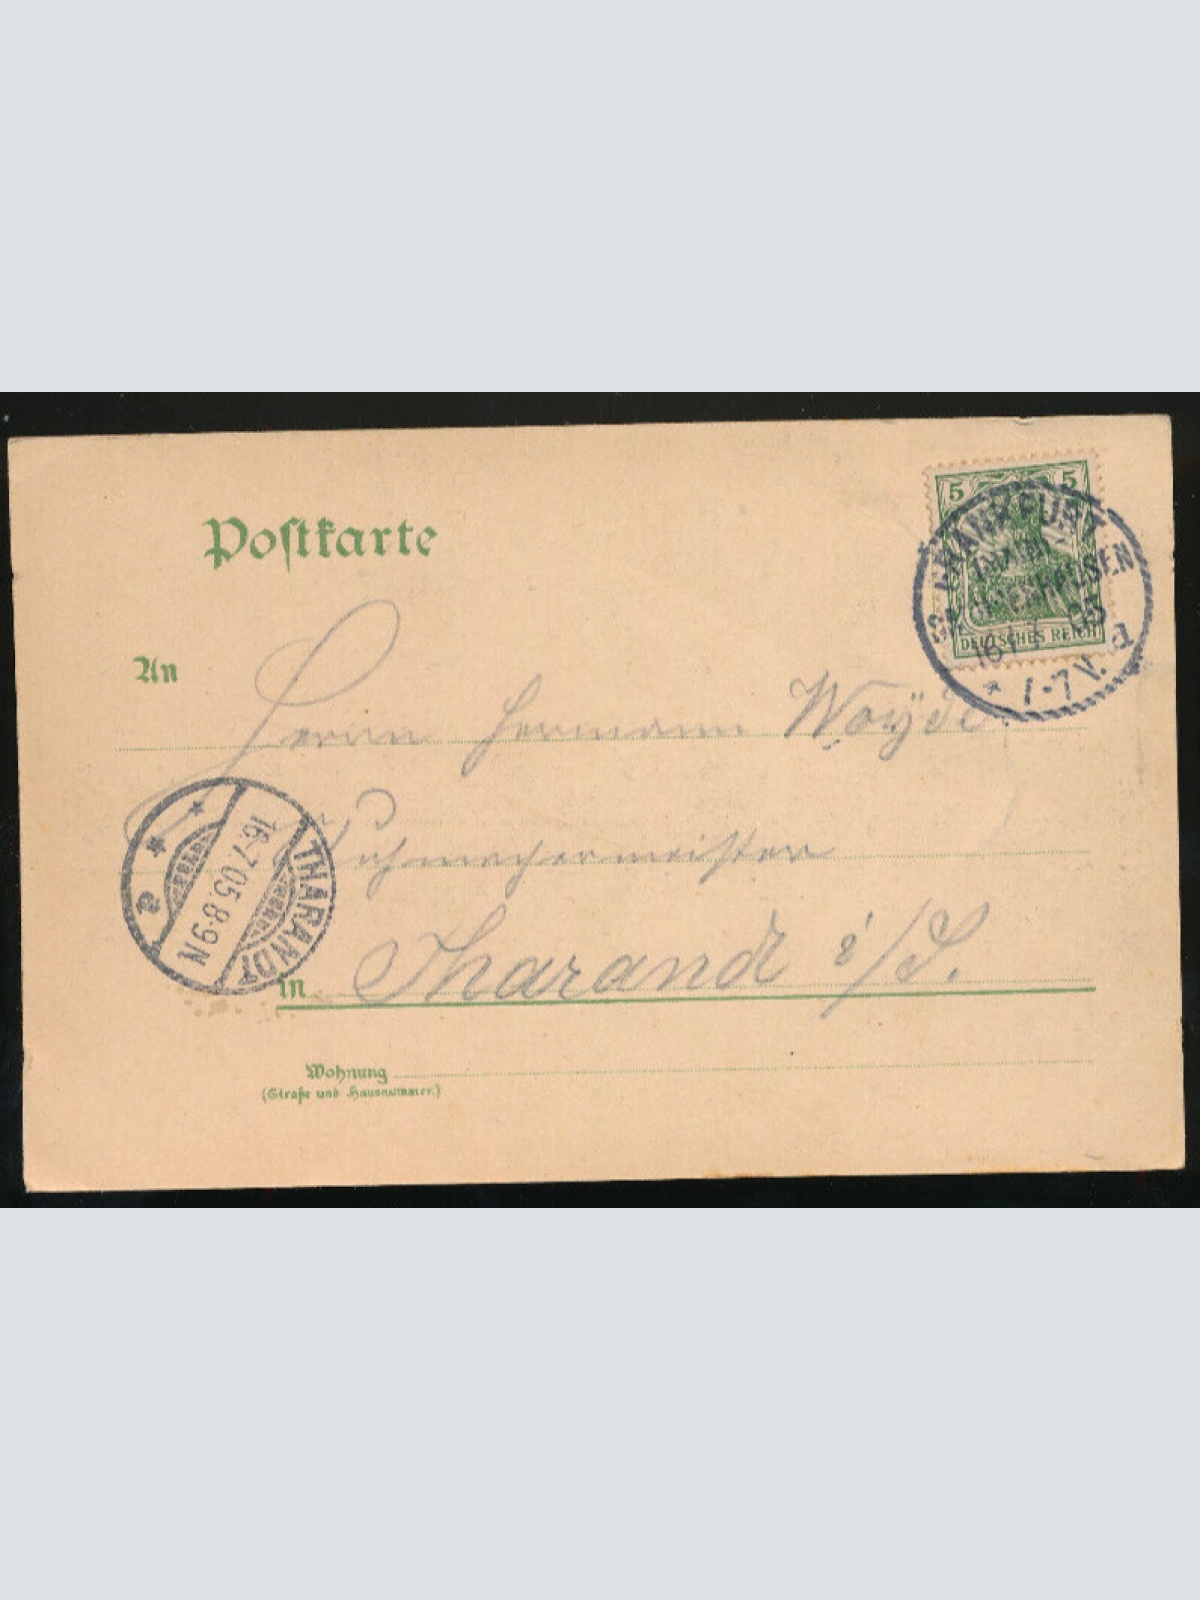 Postkarte
5 5
DEUTSCHES REICH
FRANKFURT
(MAIN)
SACHSENHAUSEN
16 7 05
* 7-7 V. a
An
Herrn Hermann Woyde
Schuhmachermeister
in Tharand i/S.
THARANDT
16.7.05.8-9N
* * a
Wohnung
(Straße und Hausnummer.)